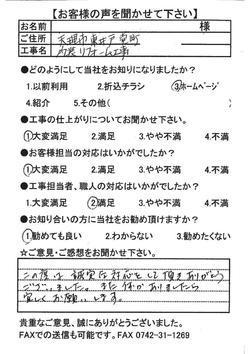 【お客様の声を聞かせて下さい】
お名前 様
ご住所 天理市東井戸堂町
工事名 内装リフォーム工事
●どのようにして当社をお知りになりましたか？
1.以前利用 2.折込チラシ ③ホームページ
4.紹介 5.その他( )
●工事の仕上がりについてお聞かせ下さい。
①大変満足 2.満足 3.やや不満 4.不満
●お客様担当の対応はいかがでしたか？
①大変満足 2.満足 3.やや不満 4.不満
●工事担当者、職人の対応はいかがでしたか？
1.大変満足 ②満足 3.やや不満 4.不満
●お知り合いの方に当社をお勧め頂けますか？
①勧めても良い 2.わからない 3.勧めたくない
☆ご意見・ご感想をお聞かせ下さい。
この度は誠実な対応をして頂きありがとう
ございました。また何かありましたら
宜しくお願いします。
貴重なご意見、誠にありがとうございました。
FAXでの送信も可能です。FAX 0742-31-1269